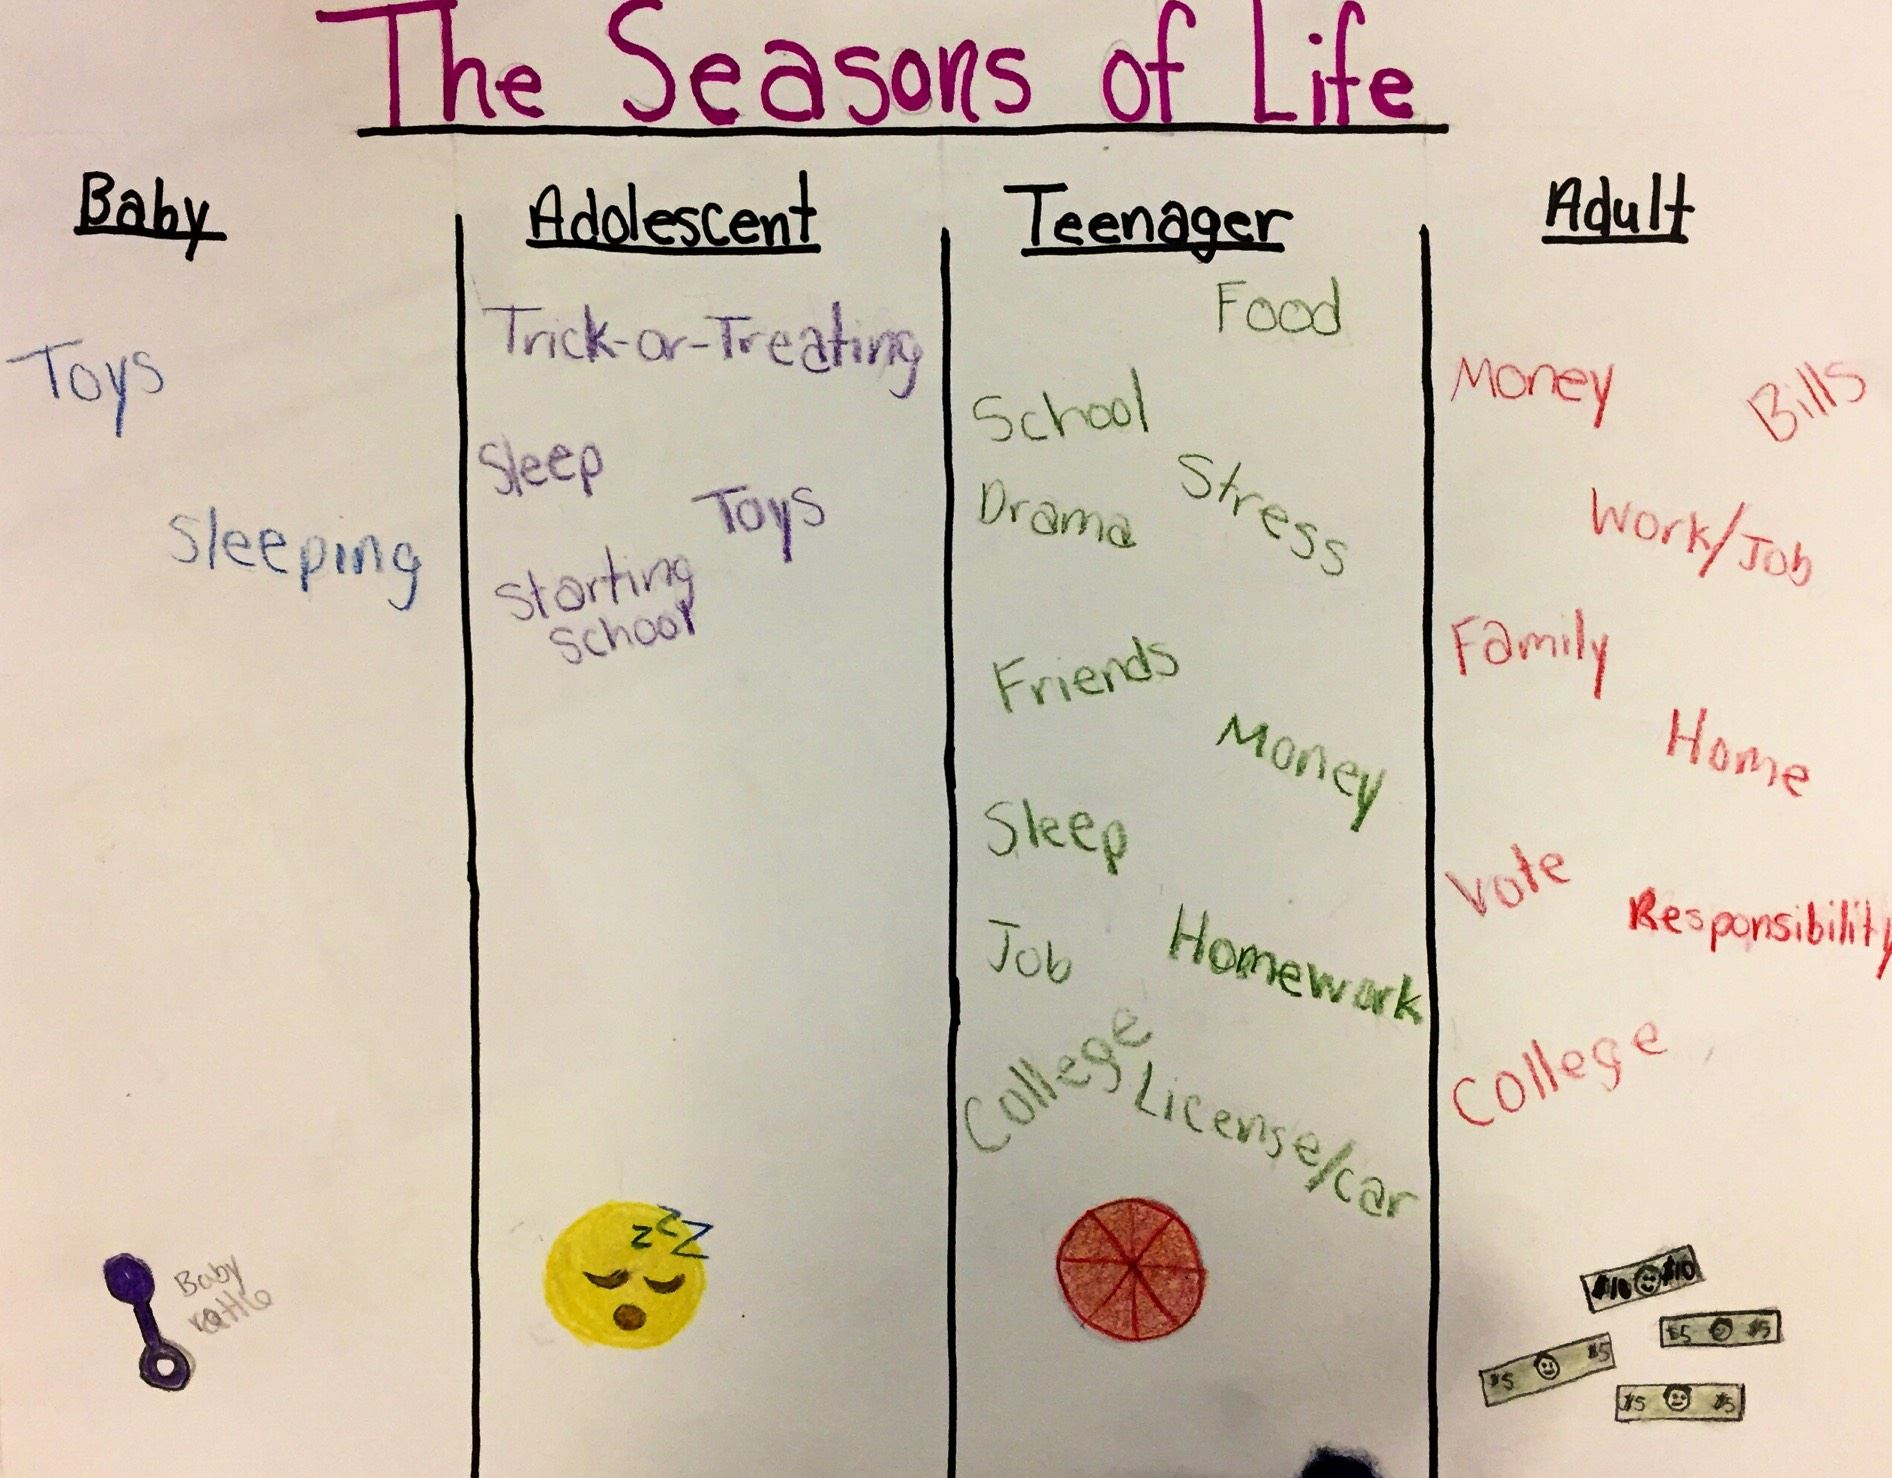 The Seasons of Life
Baby
Toys
Sleeping
Baby
rattle
Adolescent
Trick-or-Treating
Sleep
Toys
Starting
School
zzz
Teenager
Food
School
Stress
Drama
Friends
Money
Sleep
Job
Homework
College
License/car
Adult
Money
Bills
Work/Job
Family
Home
Vote
Responsibility
College
$10 $10
$5 $5
$5 $5
$5 $5